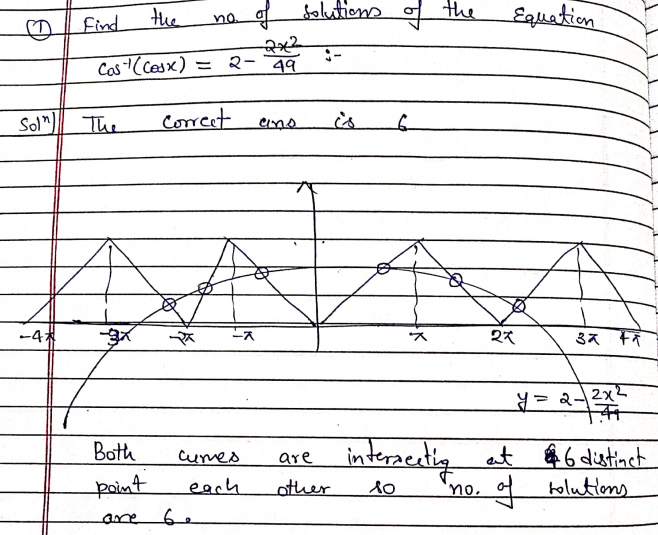 ① Find the no. of solutions of the Equation
Cos⁻¹(Cosx) = 2 - 2x²/49 :-
Solⁿ) The Correct ans is 6
-4π -3π -2π -π π 2π 3π 4π
y = 2 - 2x²/49
Both curves are intersectig at 6 distinct
point each other so no. of solutions
are 6.